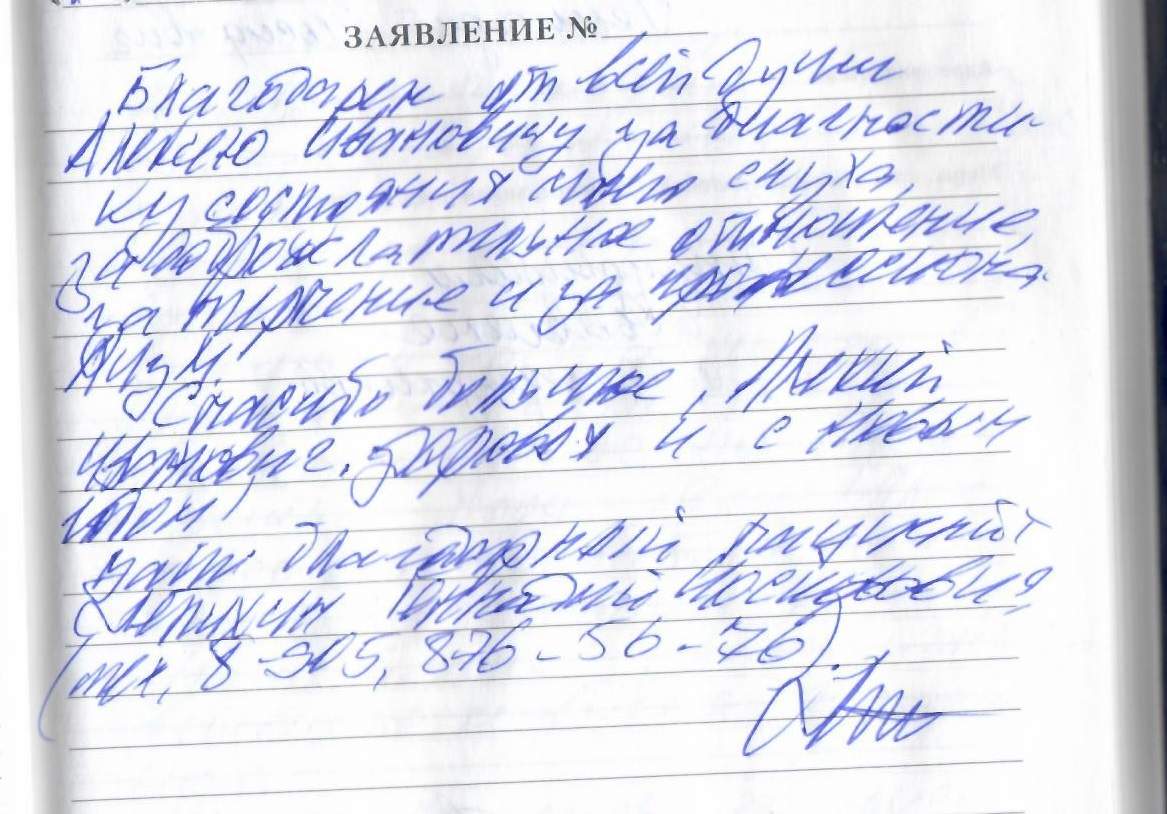 ЗАЯВЛЕНИЕ №
Благодарен от всей души
Алексею Ивановичу за диагности-
ку состояния моего слуха,
за доброжелательное отношение,
за терпение и за профессиона-
лизм.
Спасибо большое, Алексей
Иванович, здоровья и с Новым
годом!
Ваш благодарный пациент
Геннадий Иосифович
(тел. 8-905, 876-56-76).